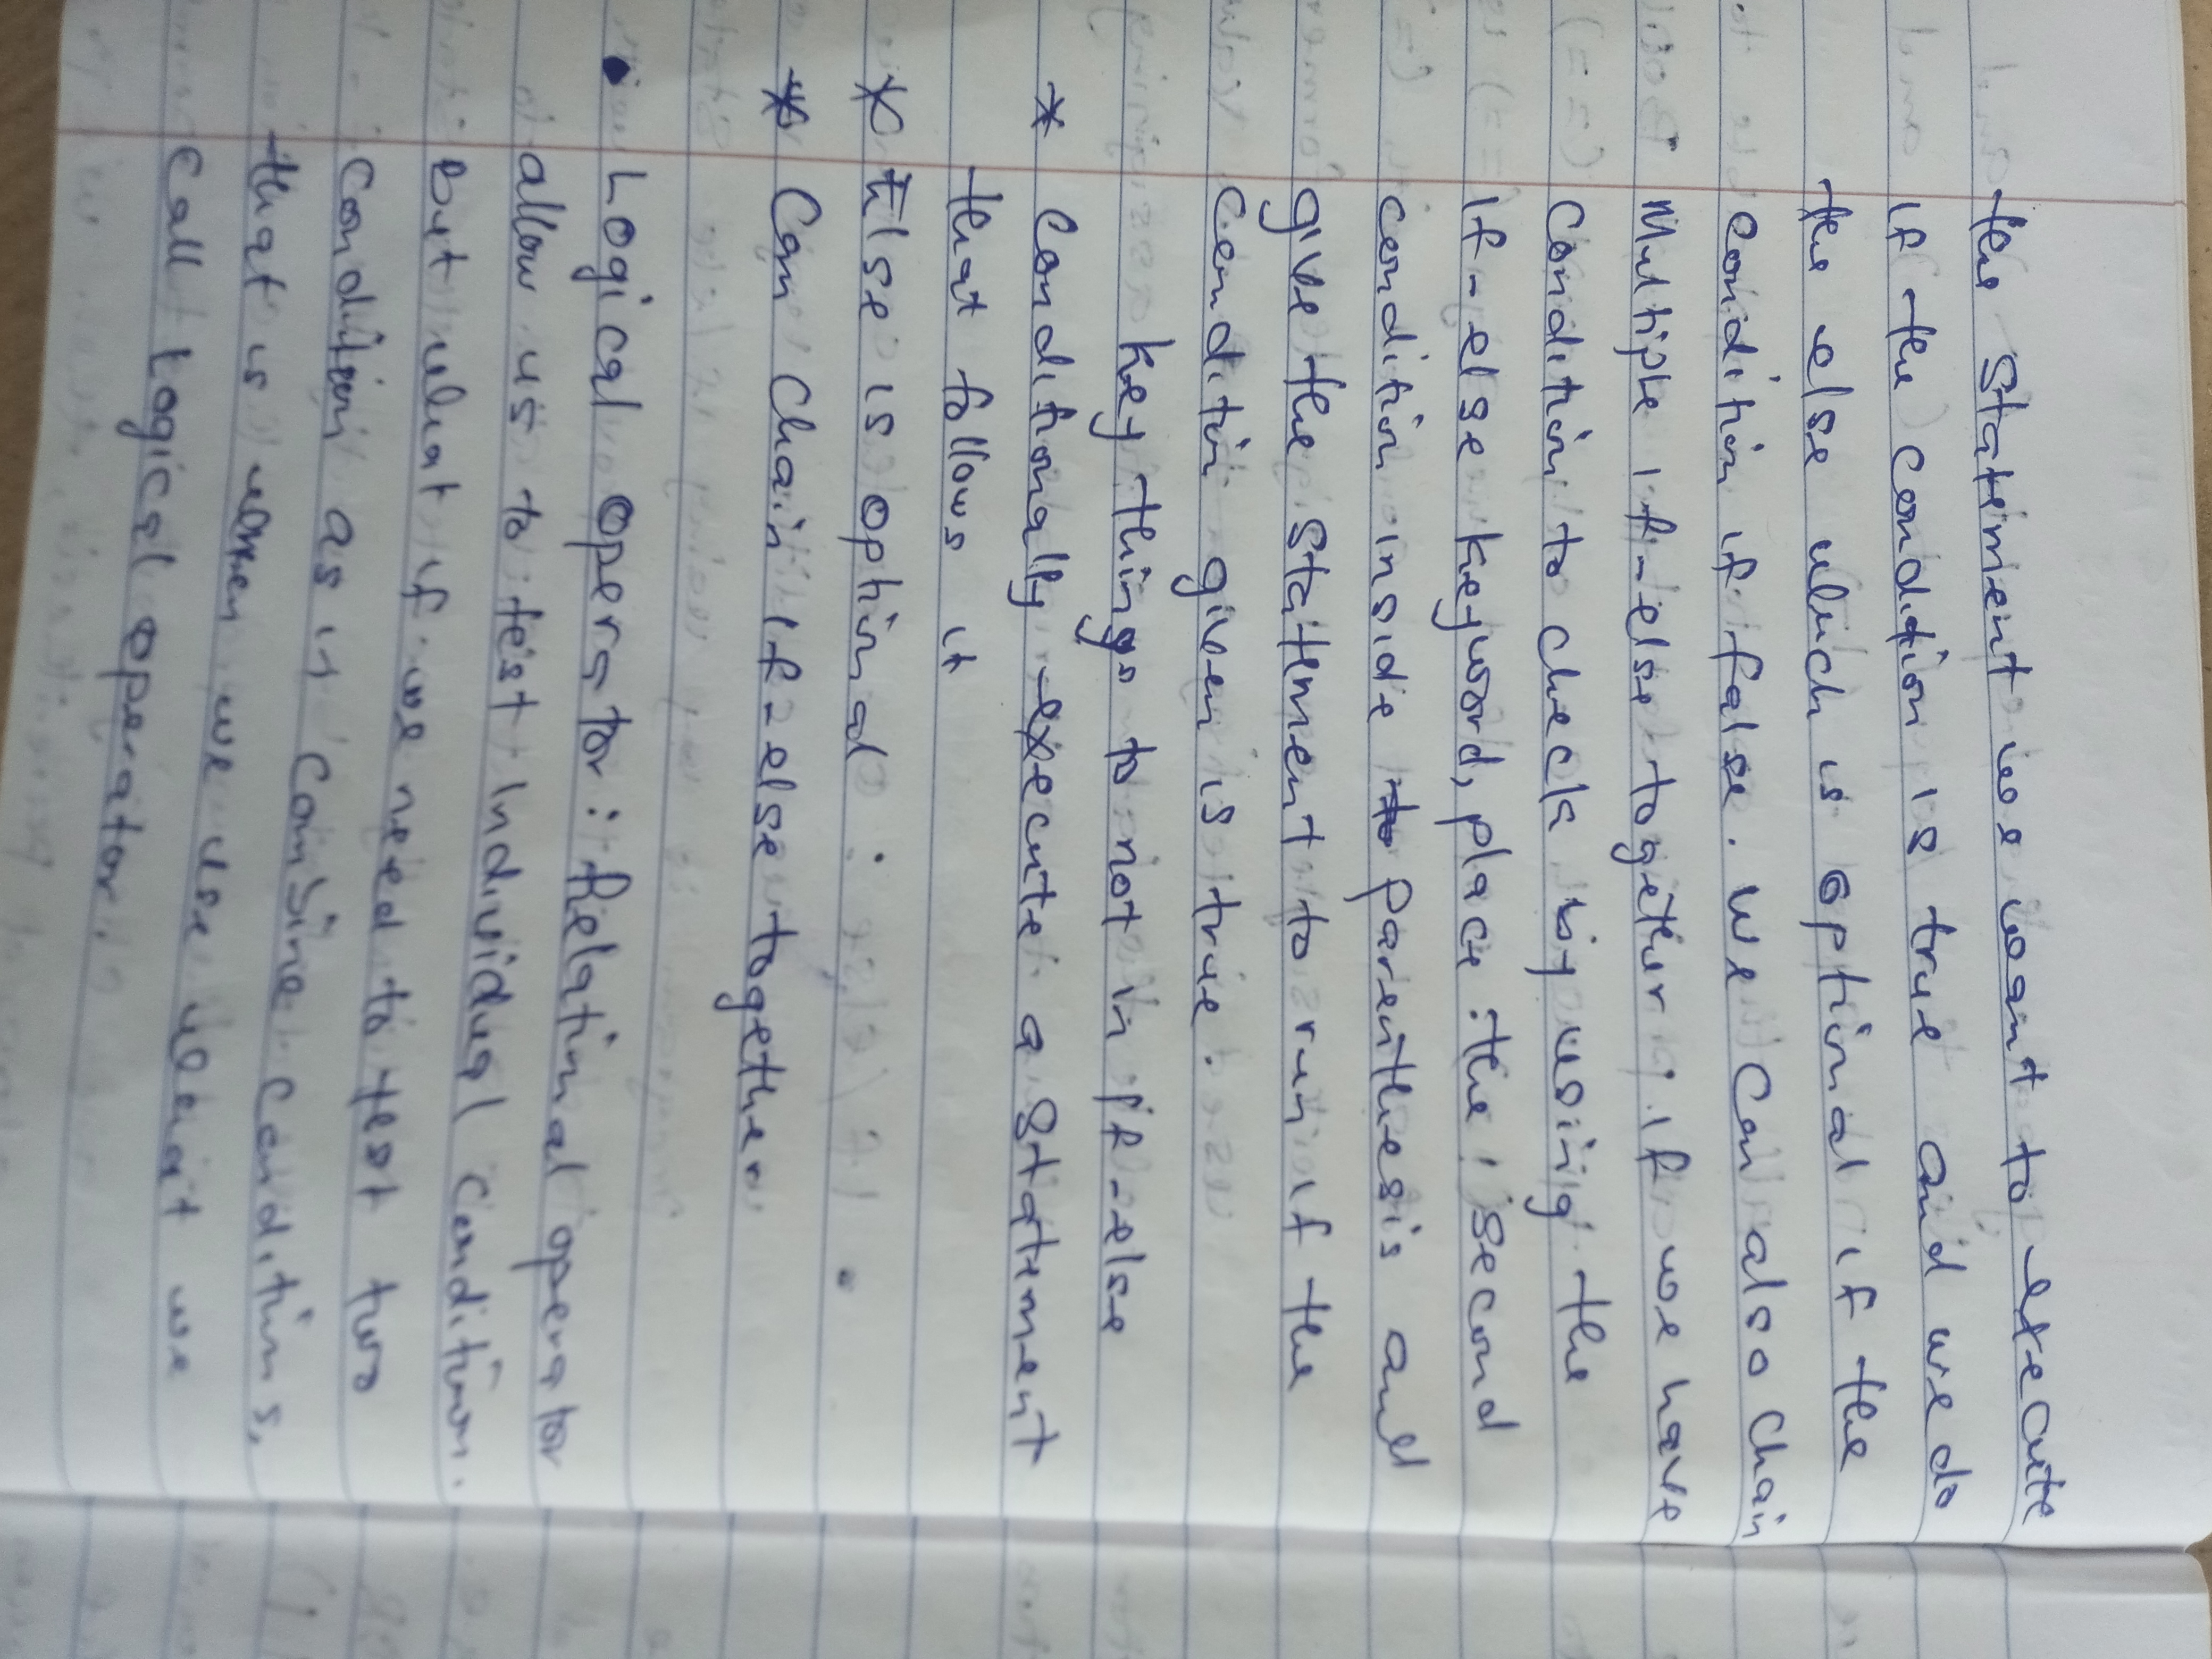 the statement we want to execute
if the condition is true and we do
the else which is optional if the
condition if false. We can also chain
Multiple if-else together if we have
condition to check by using the
if-else keyword, place the second
condition inside parenthesis and
give the statement to run if the
condition given is true.
Key things to not in if-else
* Conditionally execute a statement
that follows it
* Else is optional
* Can chain if-else together
• Logical Operator: Relational operator
allow us to test individual condition.
But what if we need to test two
condition as in combine conditions,
that is when we use what we
call Logical operator.